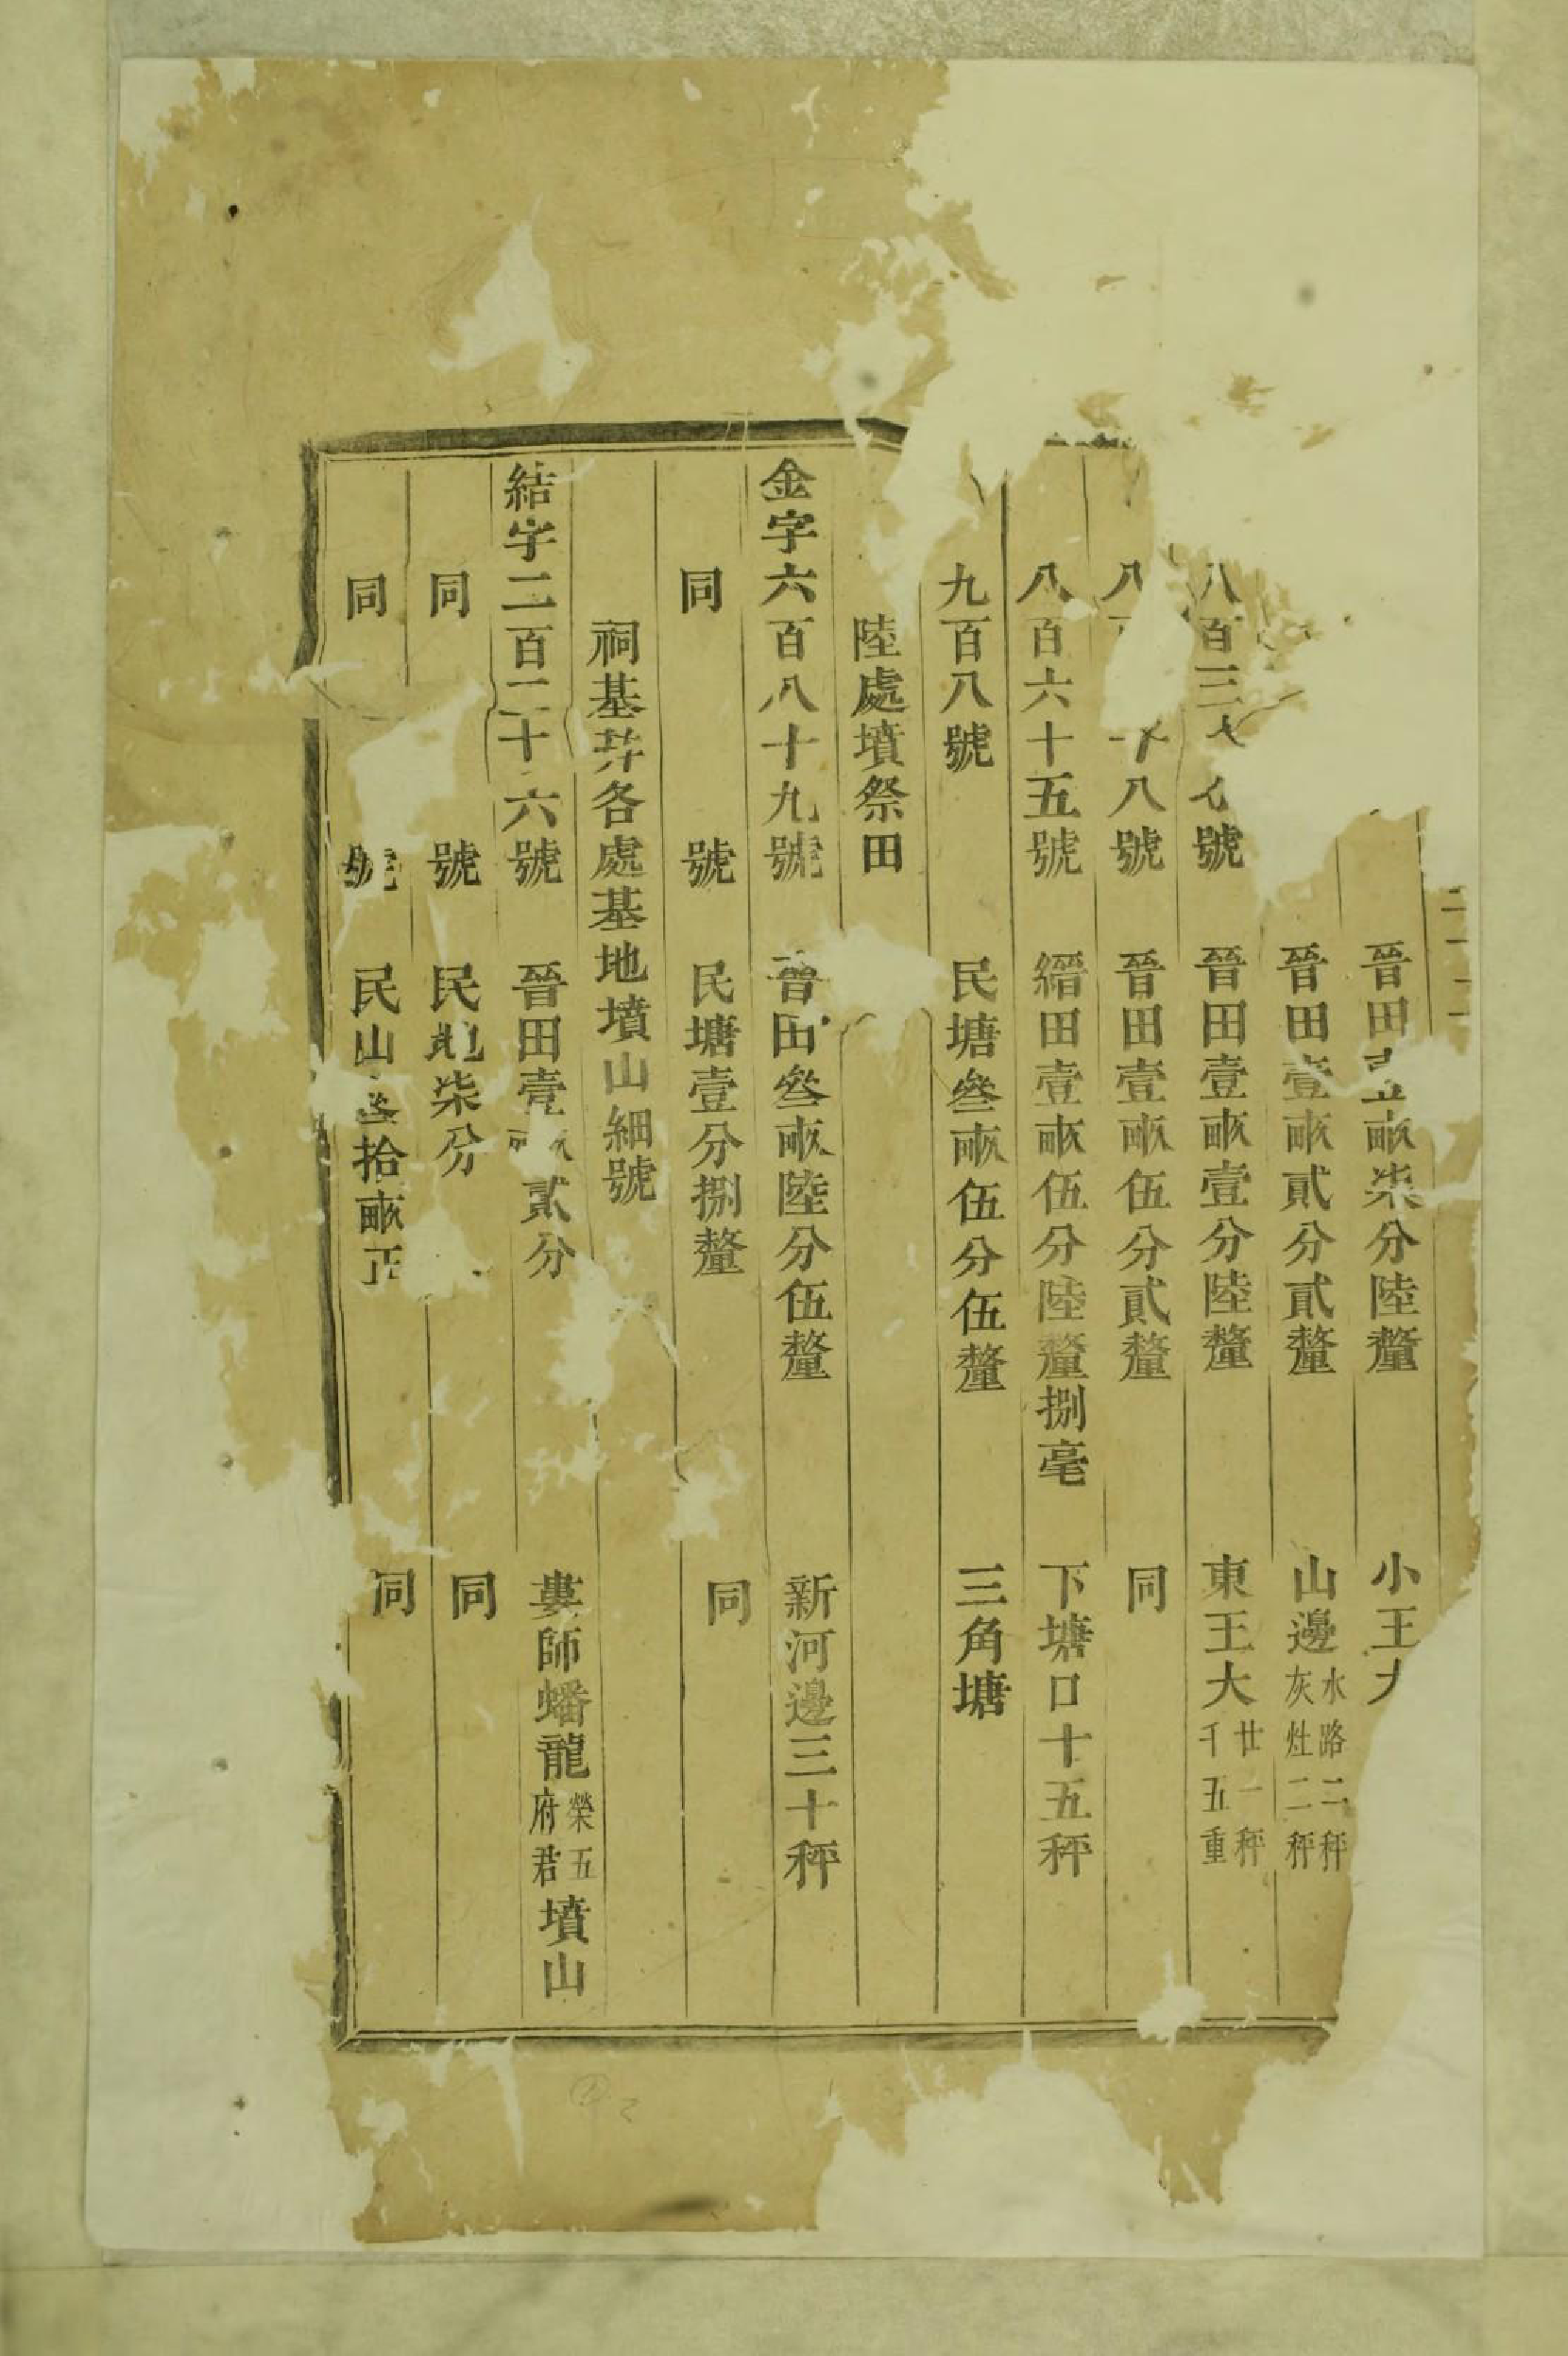 晉田壹畝柒分陸釐 小王大
晉田壹畝貳分貳釐 山邊水路二秤灰灶二秤
八百三 號 晉田壹畝壹分陸釐 東王大廿一秤千五重
八 十八號 晉田壹畝伍分貳釐 同
八百六十五號 縉田壹畝伍分陸釐捌毫 下塘口十五秤
九百八號 民塘叄畝伍分伍釐 三角塘
陸處墳祭田
金字六百八十九號 晉田叄畝陸分伍釐 新河邊三十秤
同 號 民塘壹分捌釐 同
祠基并各處基地墳山細號
結字二百二十六號 晉田壹畝貳分 婁師蟠龍榮五府君墳山
同 號 民地柒分 同
同 號 民山 拾畝正 同